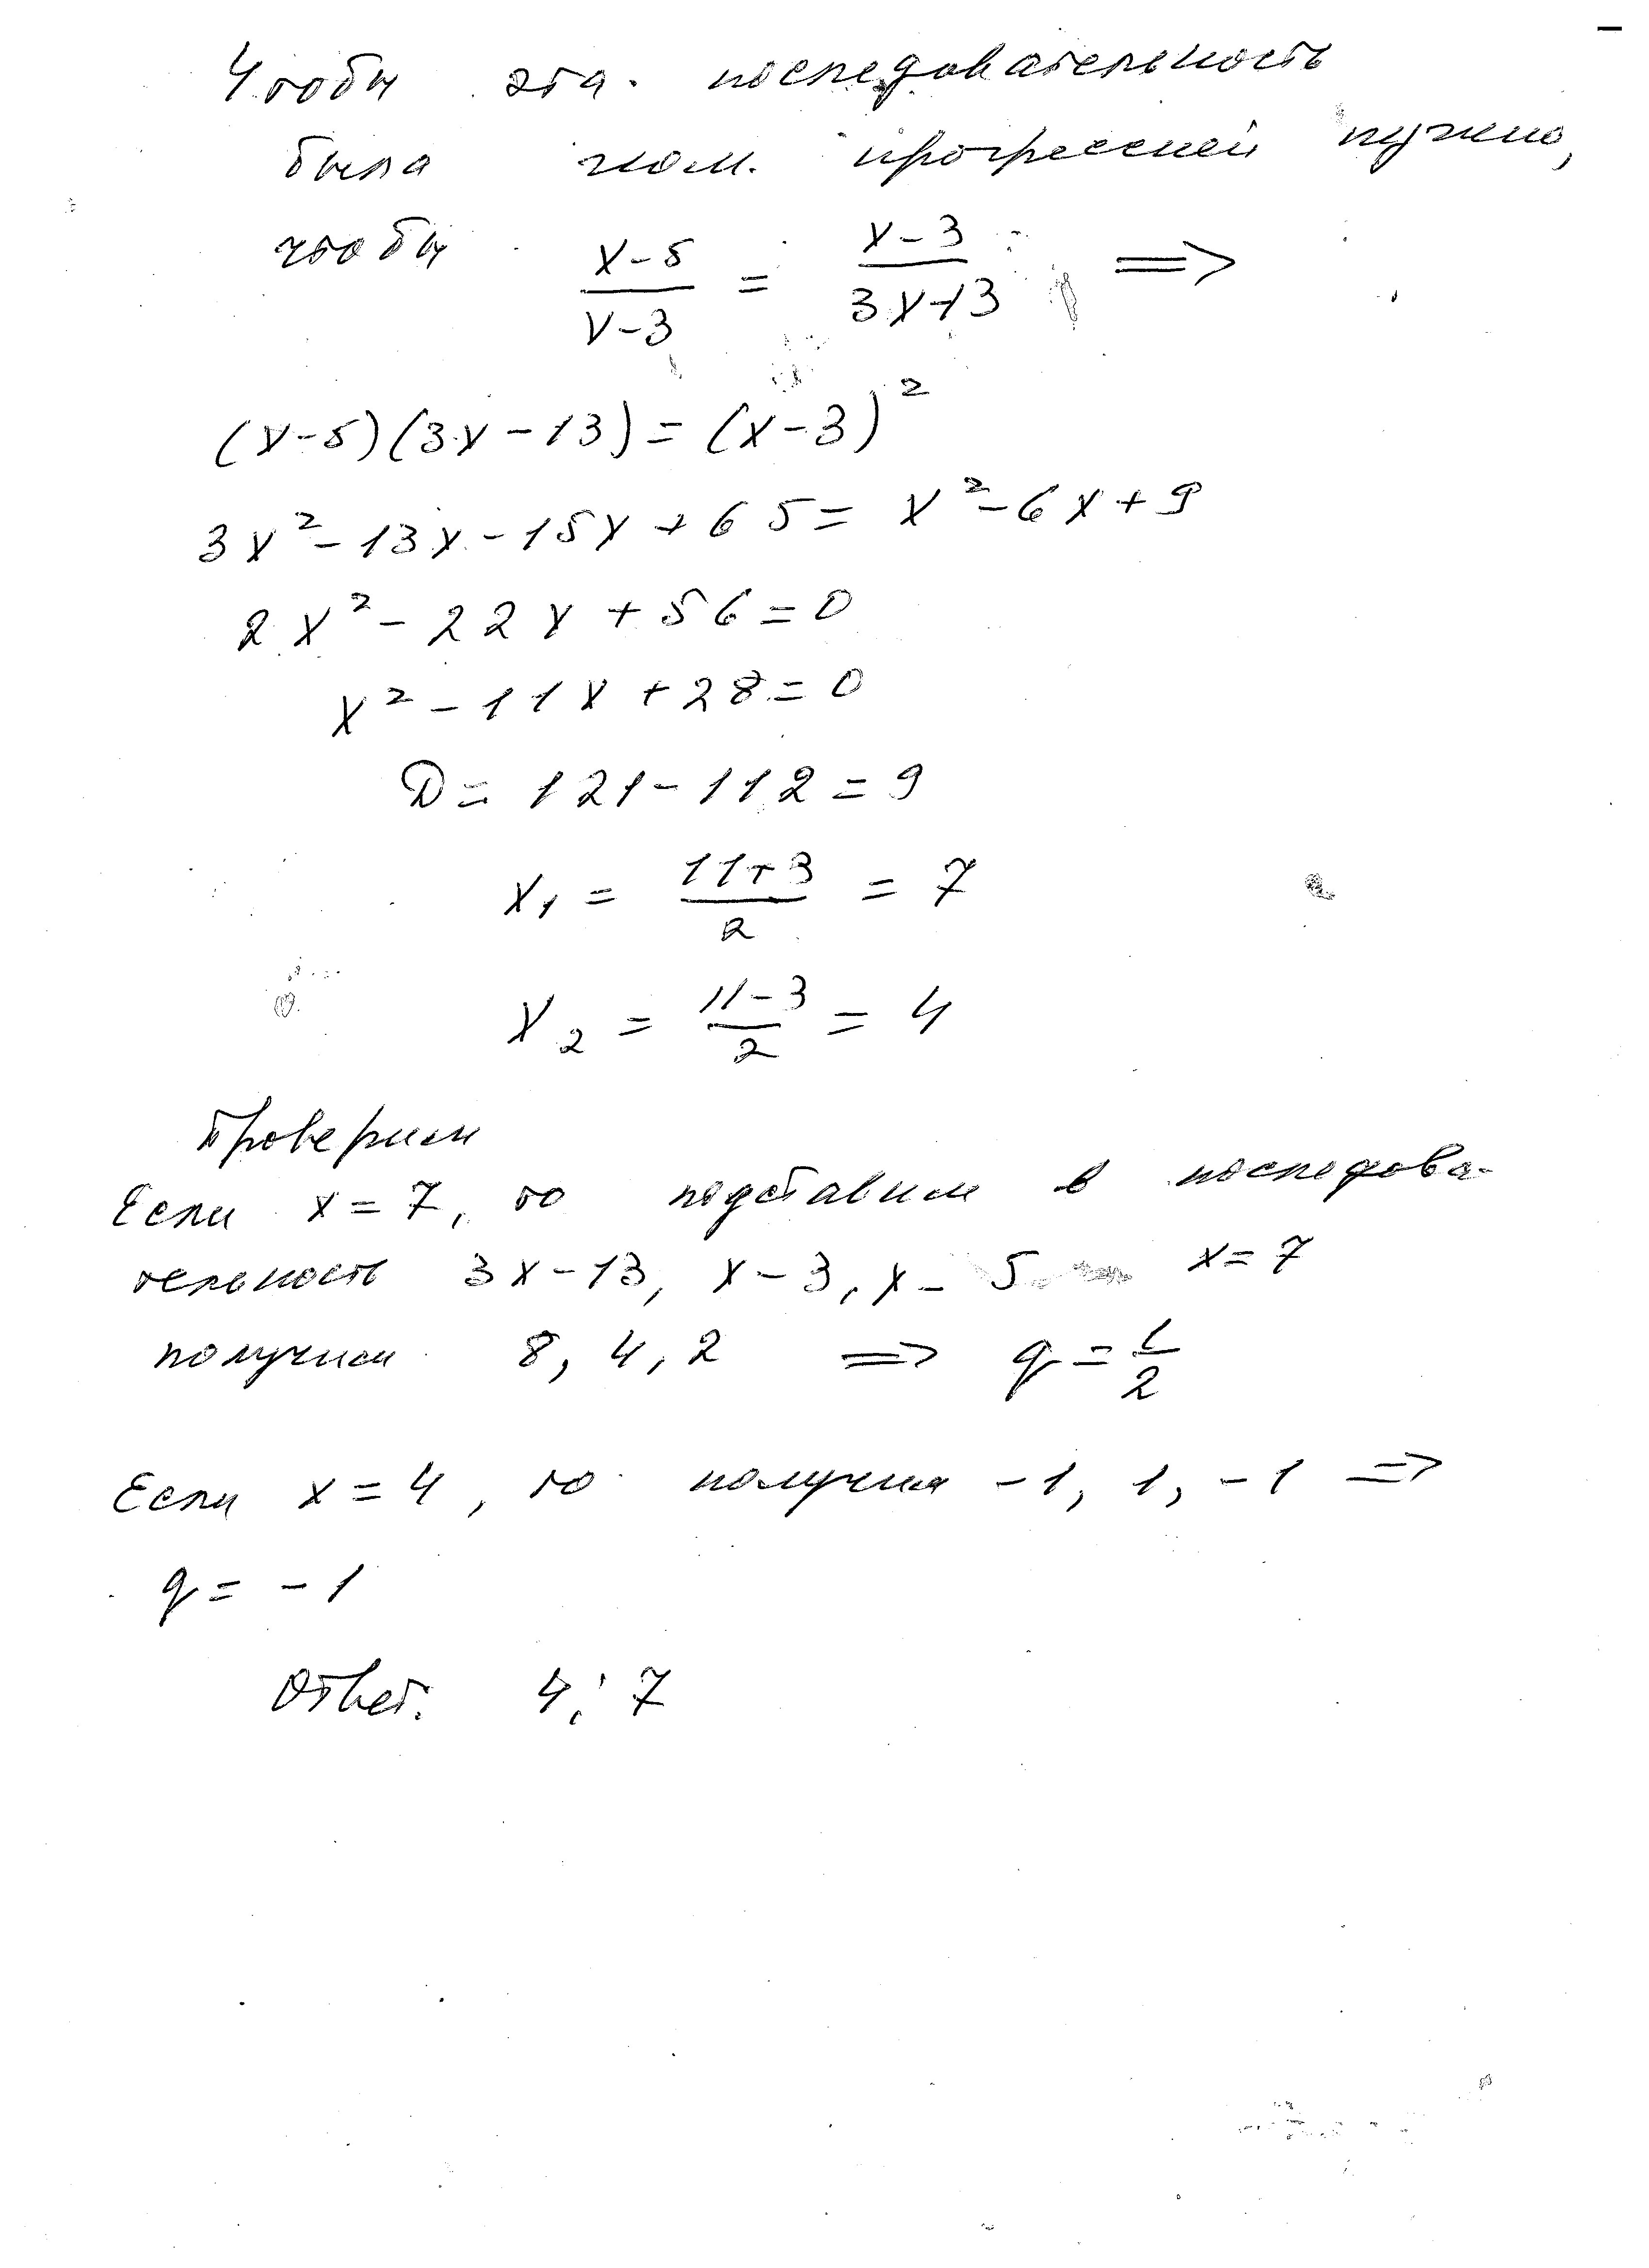 Чтобы эта последовательность
была геом. прогрессией нужно,
чтобы (x-5)/(x-3) = (x-3)/(3x-13) =>
(x-5)(3x-13)=(x-3)²
3x²-13x-15x+65=x²-6x+9
2x²-22x+56=0
x²-11x+28=0
D=121-112=9
x₁=(11+3)/2=7
x₂=(11-3)/2=4
Проверим
Если x=7, то подставим в последова-
тельность 3x-13, x-3, x-5 x=7
получим 8, 4, 2 => q=1/2
Если x=4, то получим -1, 1, -1 =>
q=-1
Ответ: 4; 7